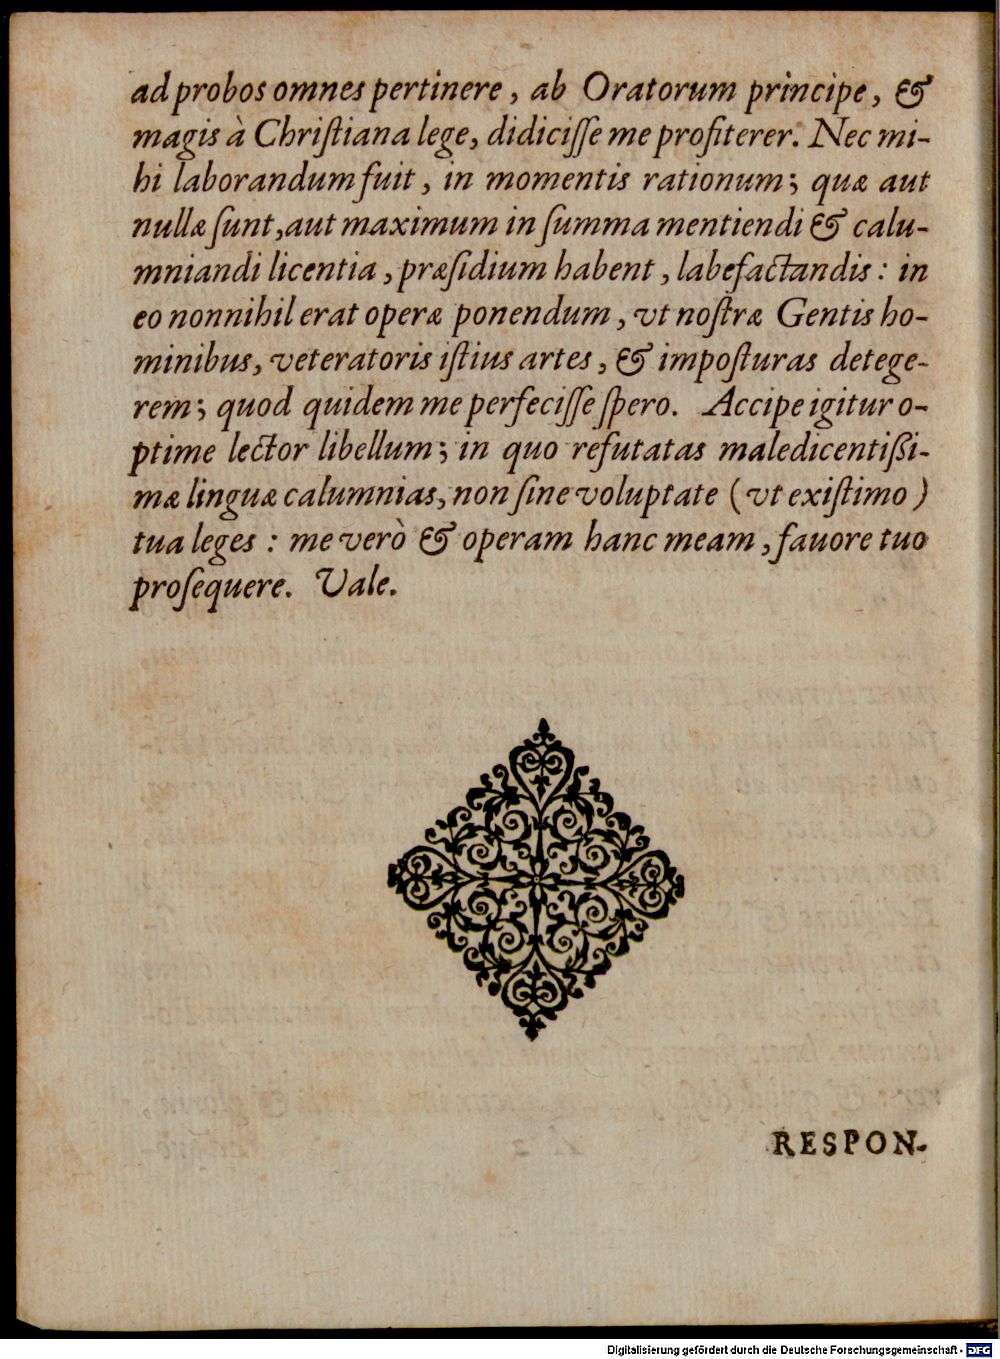 ad probos omnes pertinere, ab Oratorum principe, &
magis à Chriſtiana lege, didiciſſe me profiterer. Nec mi-
hi laborandum fuit, in momentis rationum; quæ aut
nullæ ſunt, aut maximum in ſumma mentiendi & calu-
mniandi licentia, præſidium habent, labefactandis: in
eo nonnihil erat operæ ponendum, vt noſtræ Gentis ho-
minibus, veteratoris iſtius artes, & impoſturas detege-
rem; quod quidem me perfeciſſe ſpero. Accipe igitur o-
ptime lector libellum; in quo refutatas maledicentißi-
mæ linguæ calumnias, non ſine voluptate (vt exiſtimo)
tua leges: me verò & operam hanc meam, fauore tuo
proſequere. Vale.
RESPON-
Digitalisierung gefördert durch die Deutsche Forschungsgemeinschaft - DFG